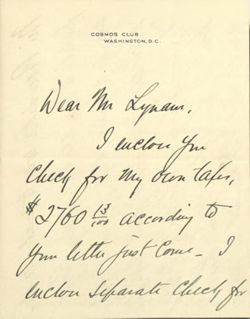 COSMOS CLUB
WASHINGTON, D.C.
Dear Mr Lynam,
I enclose you
check for my own taxes,
$2760 13/100 according to
your letter just come — I
enclose separate check for